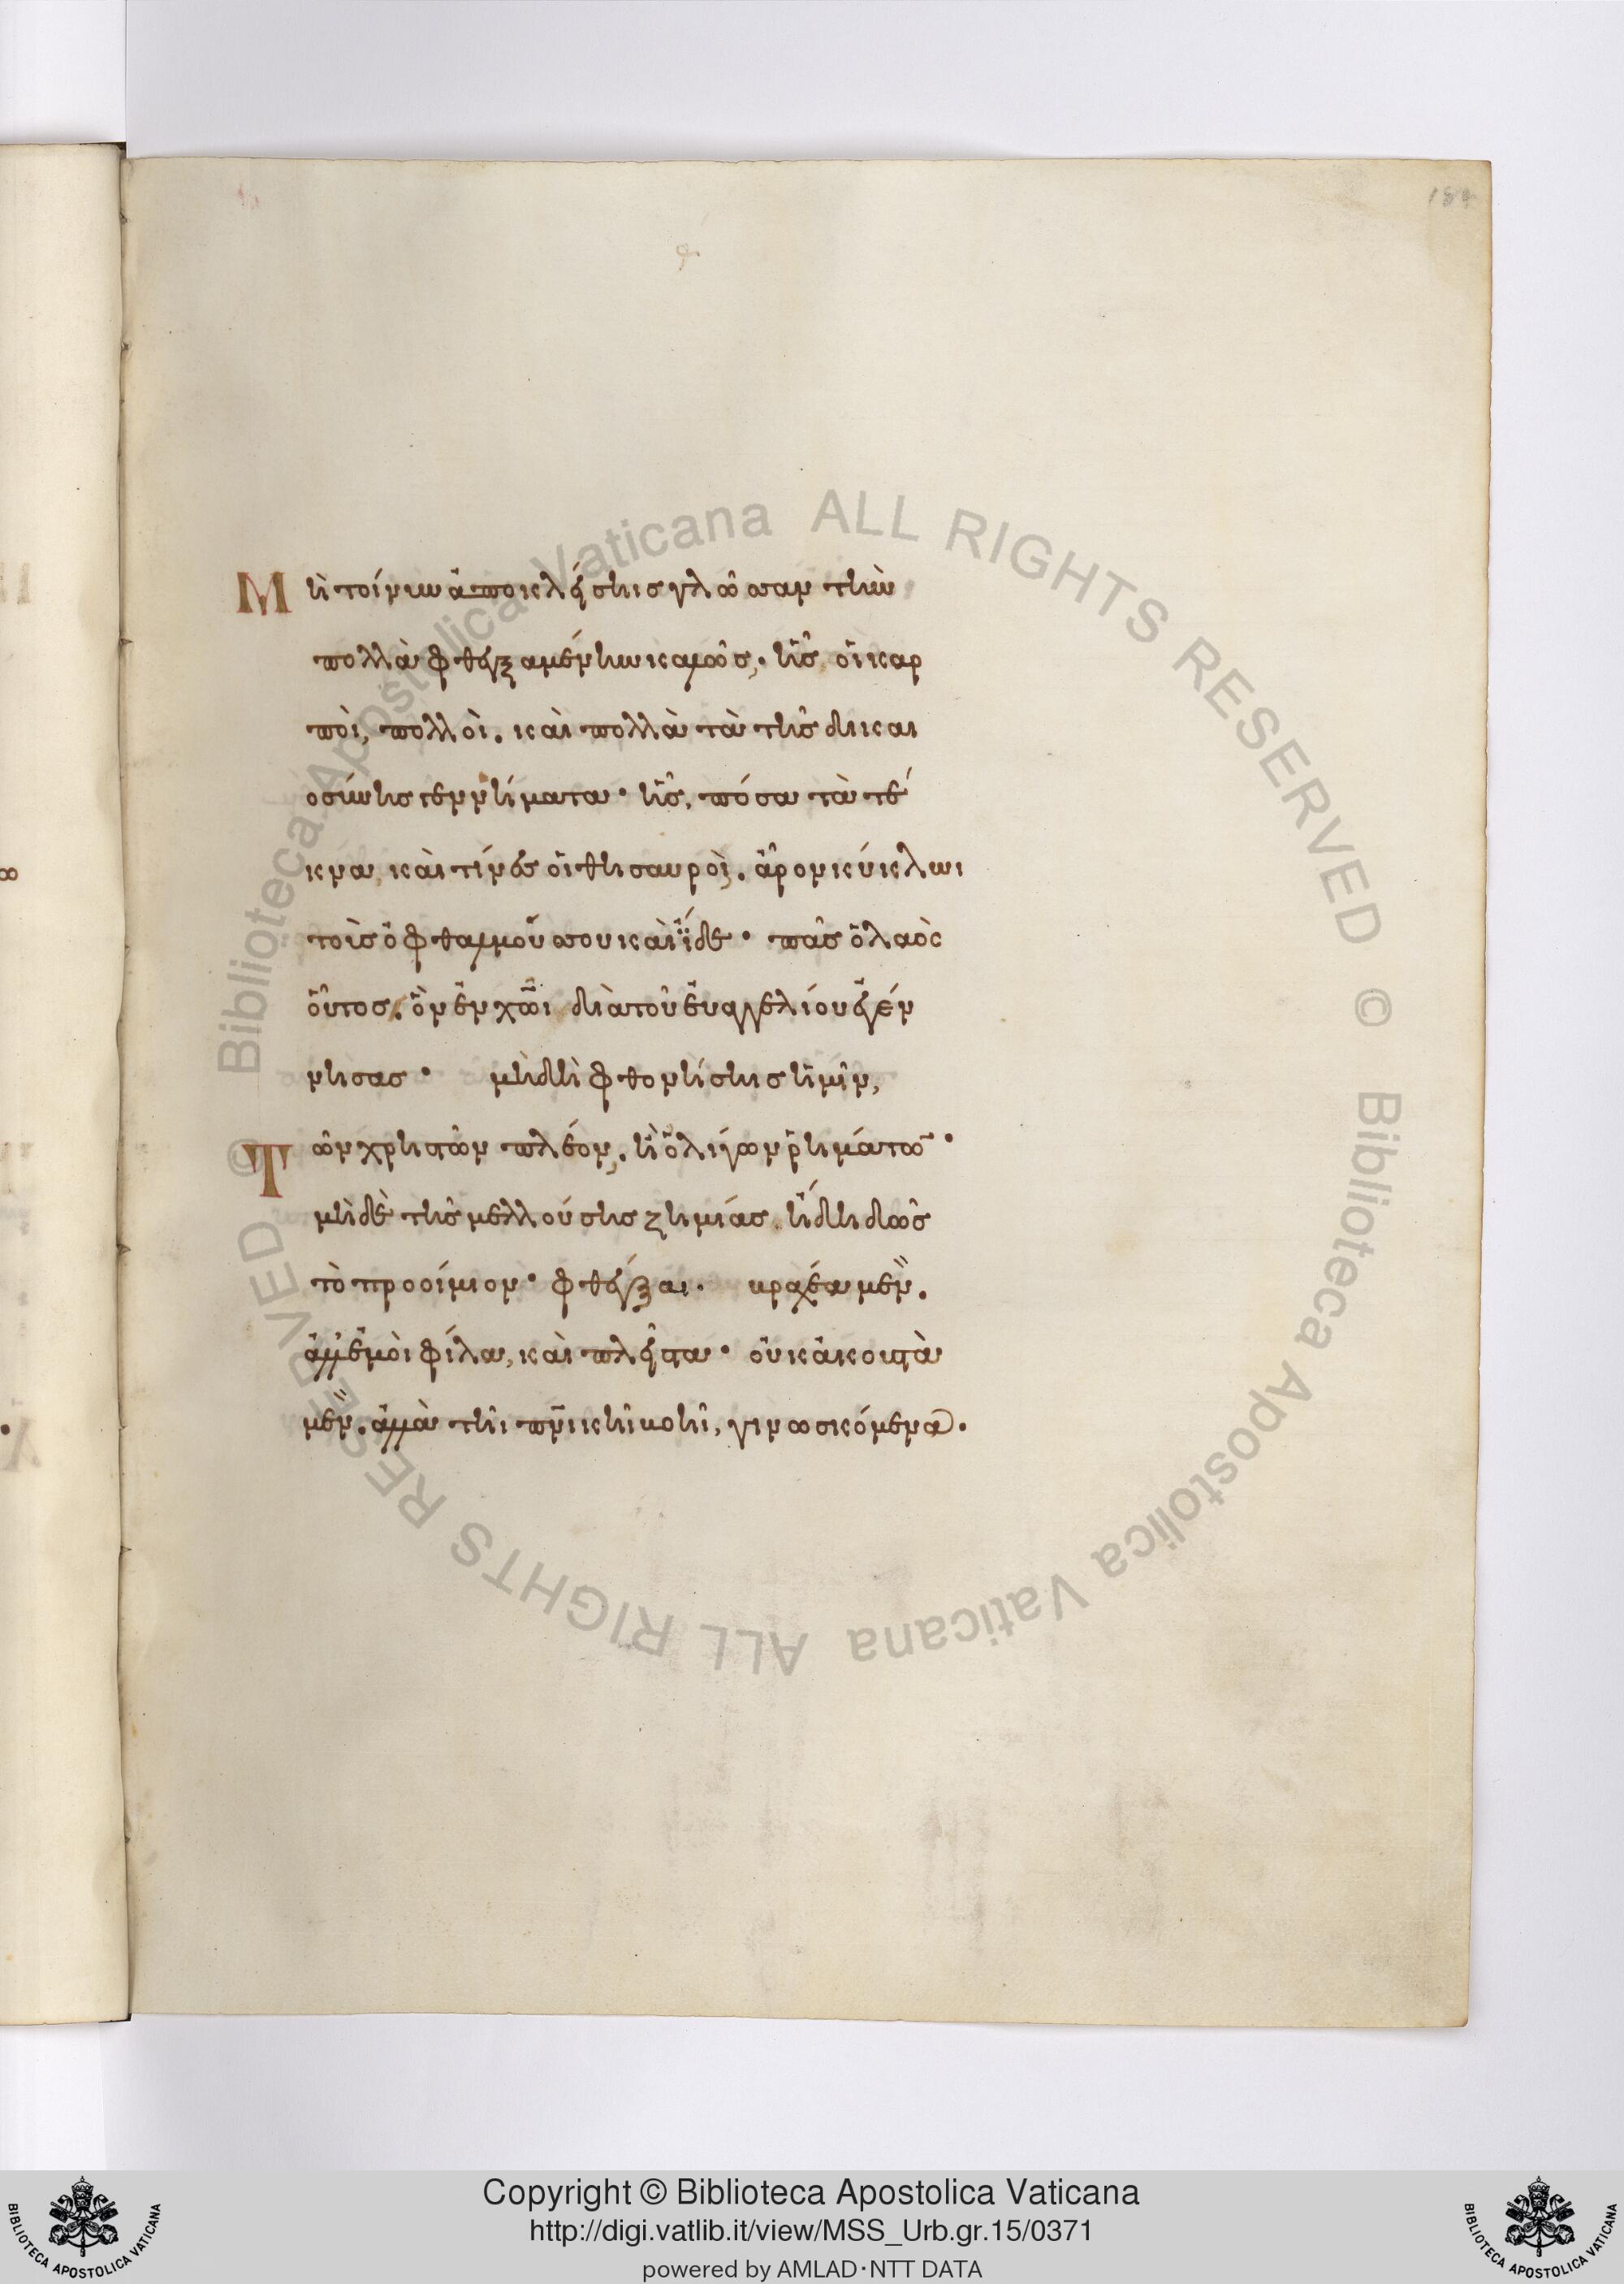 184
Μὴ τοίνυν ἀποκλείσηις γλῶσσαν τὴν
πολλὰ φθεγξαμένην καλῶς, ἧς, οἱ καρ
ποὶ, πολλοὶ. καὶ πολλὰ τὰ τῆς δικαι
οσύνης γεννήματα· ἧς, πόσα τὰ τέ
κνα, καὶ τίνες οἱ θησαυροὶ, ἆρον κύκλωι
τοὺς ὀφθαλμούς σου καὶ ἴδε· πᾶς ὁ λαὸς
οὗτος, ὃν ἐν χ̅ω̅ι διὰ τοῦ εὐαγγελίου ἐγέν
νησας· μὴ δὴ φθονήσηις ἡμῖν,
Τῶν χρηστῶν πλέον, ἢ ὀλίγων ῥημάτω̅·
μὴ δὲ τῆς μελλούσης ζημίας, ἤδη δῶις
τὸ προοίμιον· φθέγξαι βραχέα μὲν,
ἀλλ' ἐμοὶ φίλα, καὶ πλεῖστα· οὐκ ἀκουστὰ
μὲν, ἀλλὰ τῆι πν̅ικῆι βοῆι, γινωσκόμενα·
Biblioteca Apostolica Vaticana ALL RIGHTS RESERVED ©
Biblioteca Apostolica Vaticana ALL RIGHTS RESERVED ©
Copyright © Biblioteca Apostolica Vaticana
http://digi.vatlib.it/view/MSS_Urb.gr.15/0371
powered by AMLAD·NTT DATA
BIBLIOTECA APOSTOLICA VATICANA
BIBLIOTECA APOSTOLICA VATICANA